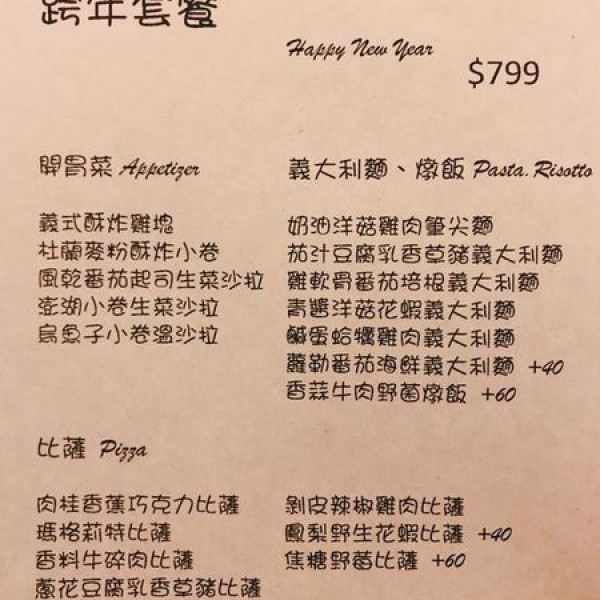 跨年套餐
Happy New Year
$799
開胃菜 Appetizer
義式酥炸雞塊
杜蘭麥粉酥炸小卷
風乾番茄起司生菜沙拉
澎湖小卷生菜沙拉
烏魚子小卷溫沙拉
義大利麵、燉飯 Pasta. Risotto
奶油洋菇雞肉筆尖麵
茄汁豆腐乳香草豬義大利麵
雞軟骨番茄培根義大利麵
青醬洋菇花蝦義大利麵
鹹蛋蛤蠣雞肉義大利麵
蘿勒番茄海鮮義大利麵 +40
香蒜牛肉野菌燉飯 +60
比薩 Pizza
肉桂香蕉巧克力比薩
瑪格莉特比薩
香料牛碎肉比薩
蔥花豆腐乳香草豬比薩
剝皮辣椒雞肉比薩
鳳梨野生花蝦比薩 +40
焦糖野莓比薩 +60